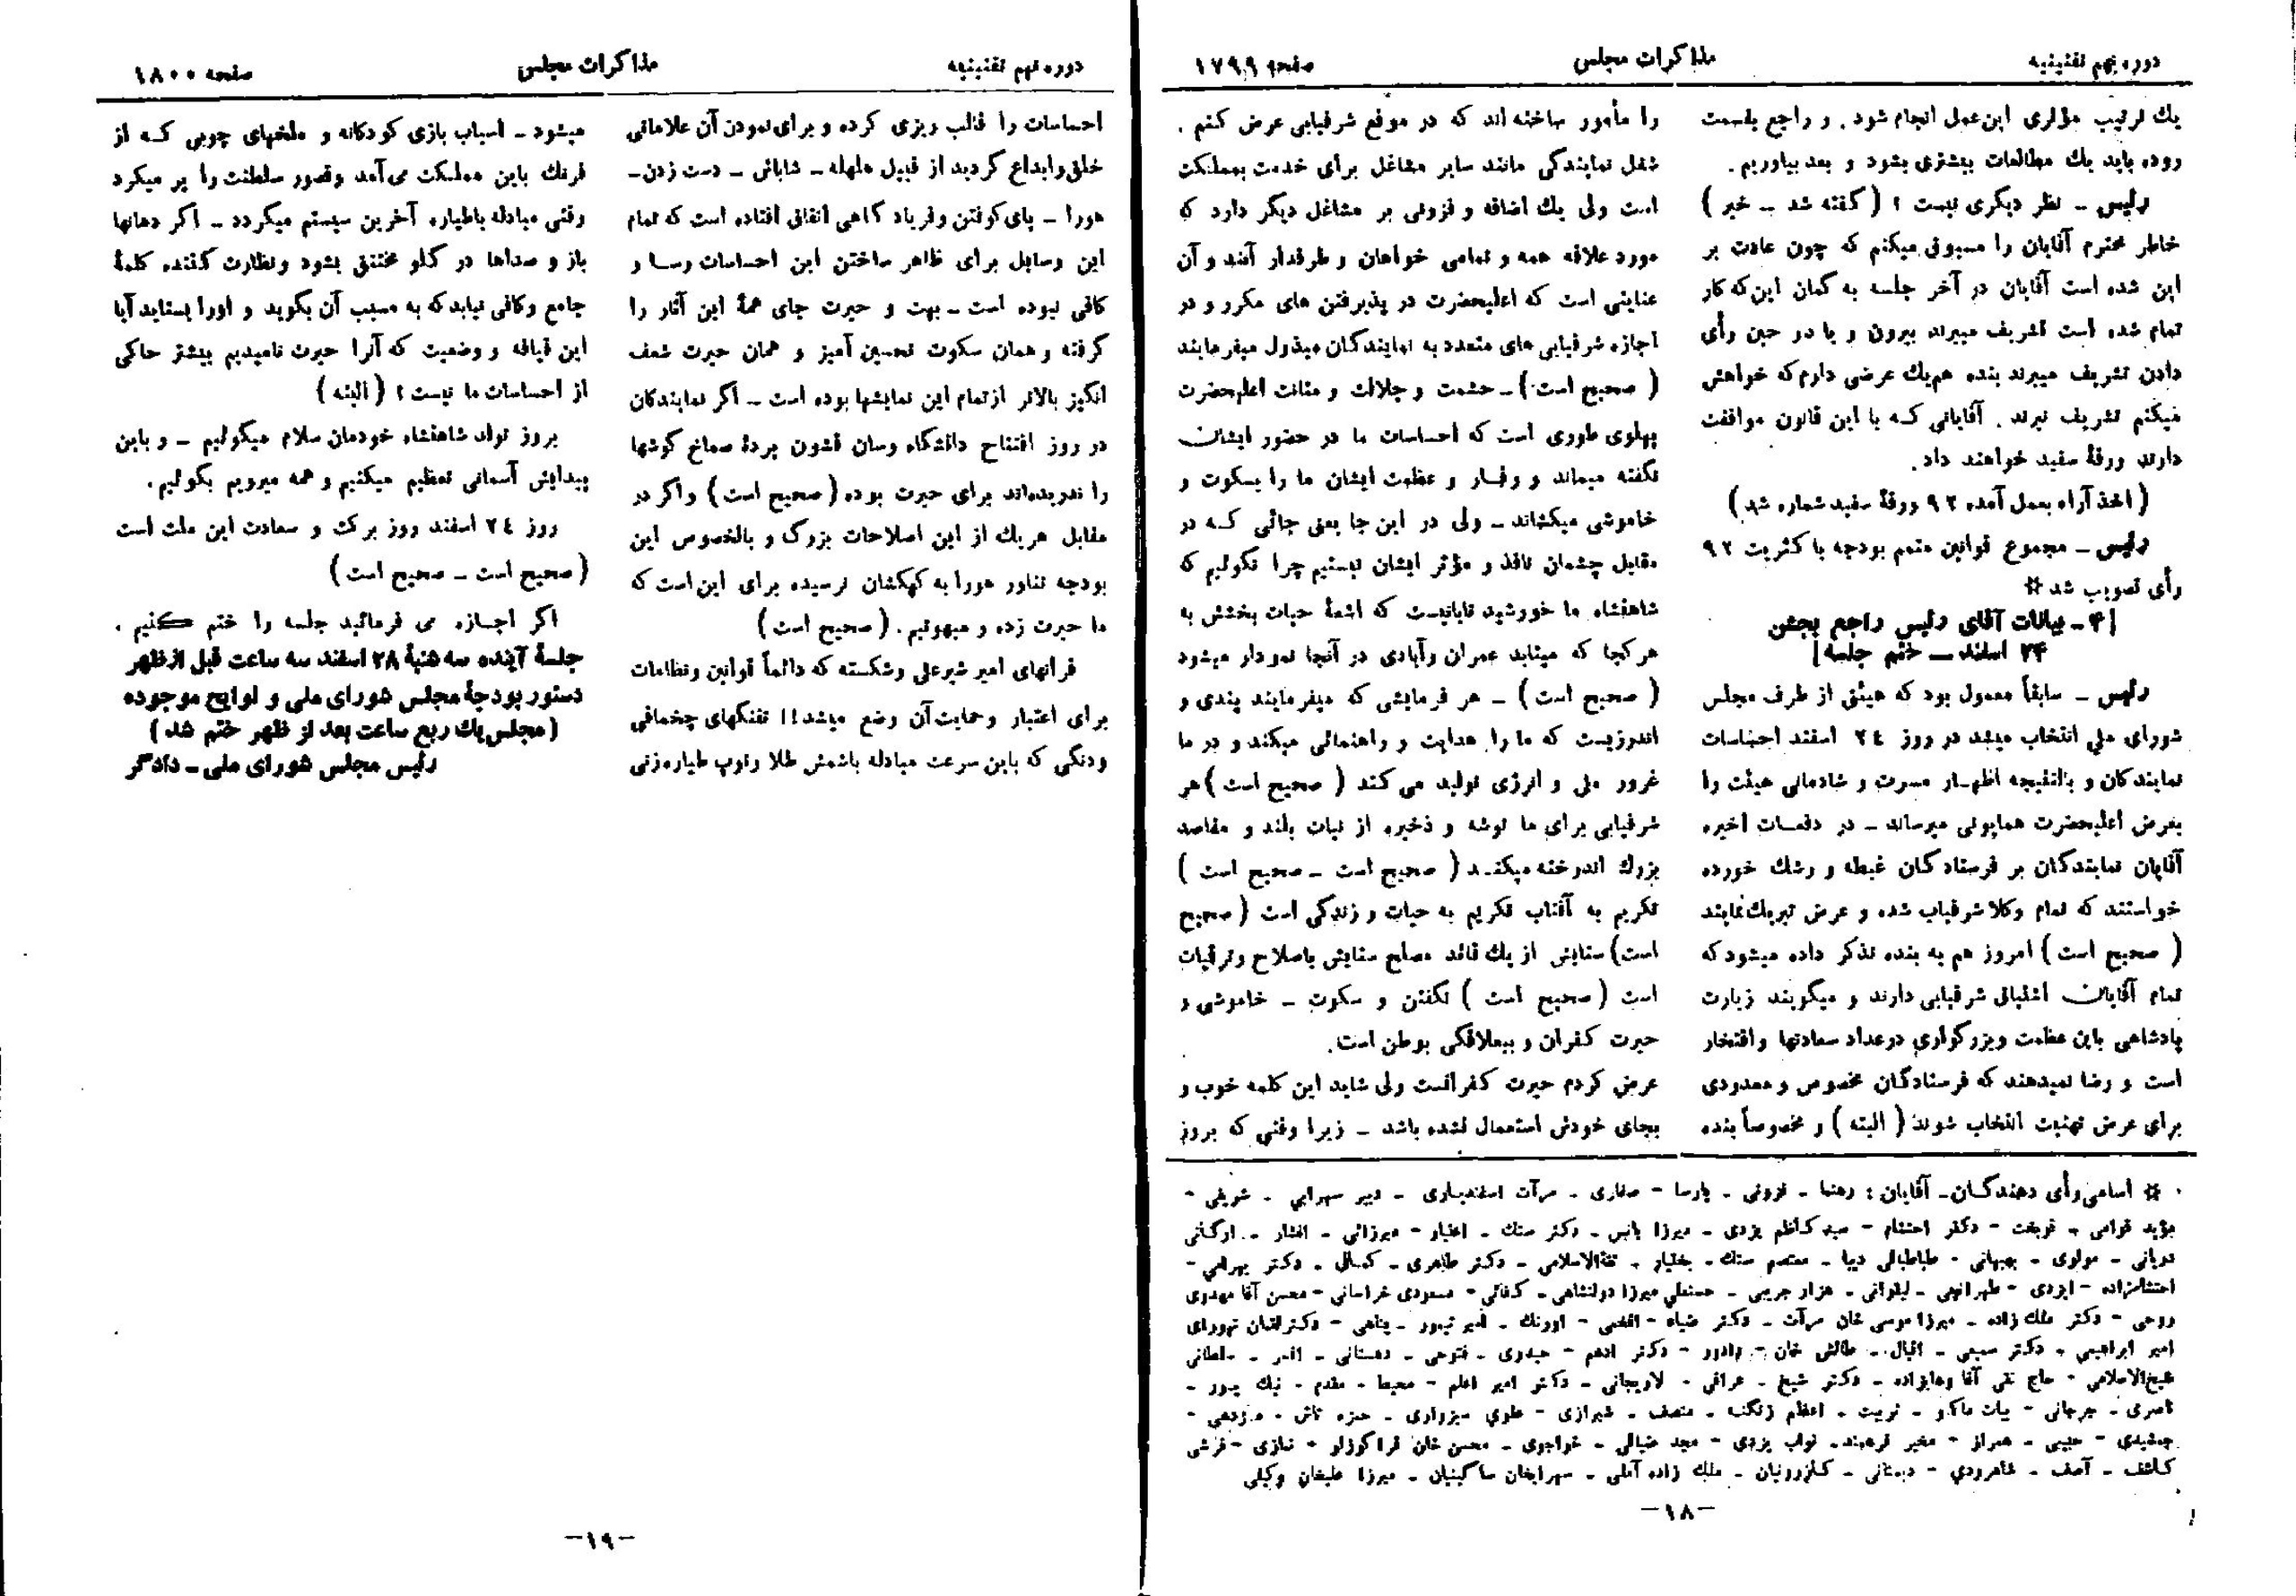 دوره نهم تقنینیه
مذاکرات مجلس
صفحه ۱۷۹۹
یك ترتیب مؤثری این‌عمل انجام شود. و راجع بقسمت
روده باید یك مطالعات بیشتری بشود و بعد بیاوریم.
رئیس ـ نظر دیگری نیست؟ (گفته شد ـ خیر)
خاطر محترم آقایان را مسبوق میکنم که چون عادت بر
این شده است آقایان در آخر جلسه به گمان این‌که کار
تمام شده است تشریف میبرند بیرون و یا در حین رأی
دادن تشریف میبرند بنده هم‌یك عرضی دارم که خواهش
میکنم تشریف نبرند. آقایانی کـه با این قانون موافقت
دارند ورقهٔ سفید خواهند داد.
(اخذ آراء بعمل آمده ۹۲ ورقهٔ سفید شماره شد)
رئیس ـ مجموع قوانین متمم بودجه با کثریت ۹۲
رأی تصویب شد *
[۴ـ بیانات آقای رئیس راجع بجشن
۲۴ اسفند ـ ختم جلسه]
رئیس ـ سابقاً معمول بود که هیئتی از طرف مجلس
شورای ملی انتخاب میشد در روز ۲٤ اسفند احساسات
نمایندکان و بالنتیجه اظهـار مسرت و شادمانی هیئت را
بعرض اعلیحضرت همایونی میرساند ـ در دفعـات اخیره
آقایان نمایندکان بر فرستادکان غبطه و رشك خورده
خواستند که تمام وکلا شرفیاب شده و عرض تبریك نمایند
(صحیح است) امروز هم به بنده تذکر داده میشود که
تمام آقایان اشتیاق شرفیابی دارند و میگویند زیارت
پادشاهی باین عظمت و بزرگواری در عداد سعادتها و افتخار
است و رضا نمیدهند که فرستادگان مخصوص و معدودی
برای عرض تهنیت انتخاب شوند (البته) و مخصوصاً بنده
را مأمور ساخته‌اند که در موقع شرفیابی عرض کنم.
شغل نمایندگی مانند سایر مشاغل برای خدمت بمملکت
است ولی یك اضافه و فزونی بر مشاغل دیگر دارد که
مورد علاقه همه و تمامی خواهان و طرفدار آنند و آن
عنایتی است که اعلیحضرت در پذیرفتن های مکرر و در
اجازه شرفیابی های متعدد به نمایندکان مبذول میفرمایند
(صحیح است) ـ حشمت و جلالت و متانت اعلیحضرت
پهلوی طوری است که احساسات ما در حضور ایشان
نگفته میماند و رفتـار و عظمت ایشان ما را بسکوت و
خاموشی میکشاند ـ ولی در این جا یعنی جائی کـه در
مقابل چشمان نافذ و مؤثر ایشان نیستیم چرا نگوئیم که
شاهنشاه ما خورشید تابانیست که اشعهٔ حیات بخشش به
هر کجا که میتابد عمران و آبادی در آنجا نمودار میشود
(صحیح است) ـ هر فرمایشی که میفرمایند پندی و
اندرزیست که ما را هدایت و راهنمائی میکند و در ما
غرور ملی و انرژی تولید می کند (صحیح است) هر
شرفیابی برای ما توشه و ذخیره از نیات بلند و مقاصد
بزرك اندوخته میکنـد (صحیح است ـ صحیح است)
تکریم به آفتاب تکریم به حیات و زندگی است (صحیح
است) ستایش از یك قائد مصلح ستایش باصلاح و ترقیات
است (صحیح است) نگفتن و سکوت ـ خاموشی و
حیرت کفران و بیعلاقگی بوطن است.
عرض کردم حیرت کفرانست ولی شاید این کلمه خوب و
بجای خودش استعمال نشده باشد ـ زیرا وقتی که بروز
* اسامی رأی دهندگـان ـ آقایان: رهنما ـ قزونی ـ پارسا ـ صفاری ـ مرآت اسفندیـاری ـ دبیر سهرابی ـ شریفی ـ
مؤید قوامی ـ نوبخت ـ دکتر احتشام ـ سید کاظم یزدی ـ میرزا یانس ـ دکتر سنك ـ اعتبار ـ میرزائی ـ افشار ـ اورکـانی
دربانی ـ مولوی ـ بهبهانی ـ طباطبائی دیبا ـ معتصم سنك ـ بختیار ـ ثقة‌الاسلامی ـ دکتر طاهری ـ کمـالی ـ دکتر بهرامی ـ
احتشامزاده ـ ایزدی ـ طهرانچی ـ لیقوانی ـ هزار جریبی ـ حسنعلی میرزا دولتشاهی ـ کفائی ـ مسعودی خراسانی ـ محسن آقا مهدوی
روحی ـ دکتر ملك زاده ـ میرزا موسی خان مرآت ـ دکتر ضیاء ـ افخمی ـ اورنك ـ امیر تیمور ـ پناهی ـ دکتر لقمان نهورای
امیر ابراهیمی ـ دکتر سمیعی ـ اقبال ـ طالش خان ـ دادور ـ دکتر ادهم ـ حیدری ـ فتوحی ـ دهستانی ـ افسر ـ سلطانی
شیخ‌الاسلامی ـ حاج تقی آقا وهابزاده ـ دکتر شیخ ـ عراقی ـ لاریجانی ـ دکتر امیر اعلم ـ محیط ـ مقدم ـ نیك پـور ـ
ناصری ـ جرجانی ـ بیات ماکو ـ تربیت ـ اعظم زنگنه ـ منصف ـ شیرازی ـ علوی سبزواری ـ حمزه تاش ـ
جمشیدی ـ حبیبی ـ همراز ـ مخبر فرهمند ـ نواب یزدی ـ مجد ضیائی ـ خواجوی ـ محسن خان قراگوزلو ـ نمازی ـ قرشی
کـاشف ـ آصف ـ شاهرودی ـ دبستانی ـ کـازرونیان ـ ملك زاده آملی ـ سهرابخان ساگینیان ـ میرزا علیخان وکیلی
ـ۱۸ـ
دوره نهم تقنینیه
مذاکرات مجلس
صفحه ۱۸۰۰
احساسات را قالب ریزی کرده و برای نمودن آن علاماتی
خلق و ابداع کردید از قبیل هلهله ـ شاباش ـ دست زدن ـ
هورا ـ پای کوفتن و فریاد کاهی اتفاق افتاده است که تمام
این وسایل برای ظاهر ساختن این احساسات رسـا و
کافی نبوده است ـ بهت و حیرت جای همهٔ این آثار را
گرفته و همان سکوت تحسین آمیز و همان حیرت شعف
انگیز بالاتر از تمام این نمایشها بوده است ـ اکر نمایندکان
در روز افتتاح دانشگاه وسان قشون پردهٔ صماخ گوشها
را ندریده‌اند برای حیرت بوده (صحیح است) واکر در
مقابل هریك از این اصلاحات بزرک و بالخصوص این
بودجه تناور هورا به کهکشان نرسیده برای این است که
ما حیرت زده و مبهوتیم. (صحیح است)
قرانهای امیر شیرعلی وشکسته که دائماً قوانین ونظامات
برای اعتبار وحمایت آن وضع میشد!! تفنگهای چخماقی
ودنگی که باین سرعت مبادله باشمش طلا وتوپ طیاره‌زنی
میشود ـ اسباب بازی کودکانه و ملخهای چوبی کـه از
فرنك باین مملکت می‌آمد وقصور سلطنت را پر میکرد
وقتی مبادله باطیاره آخرین سیستم میگردد ـ اکر دهانها
باز و صداها در گلو مختنق بشود ونظارت کننده کلمهٔ
جامع وکافی نیابد که به مسبب آن بگوید و اورا بستاید آیا
این قیافه و وضعیت که آنرا حیرت نامیدیم بیشتر حاکی
از احساسات ما نیست؟ (البته)
بروز تولد شاهنشاه خودمان سلام میگوئیم ـ و باین
پیدایش آسمانی تعظیم میکنیم و همه میرویم بگوئیم.
روز ۲٤ اسفند روز برکت و سعادت این ملت است
(صحیح است ـ صحیح است)
اکر اجـازه می فرمائید جلسه را ختم کنیم.
جلسهٔ آینده سه شنبهٔ ۲۸ اسفند سه ساعت قبل از ظهر
دستور بودجهٔ مجلس شورای ملی و لوایح موجوده
(مجلس یك ربع ساعت بعد از ظهر ختم شد)
رئیس مجلس شورای ملی ـ دادگر
ـ۱۹ـ